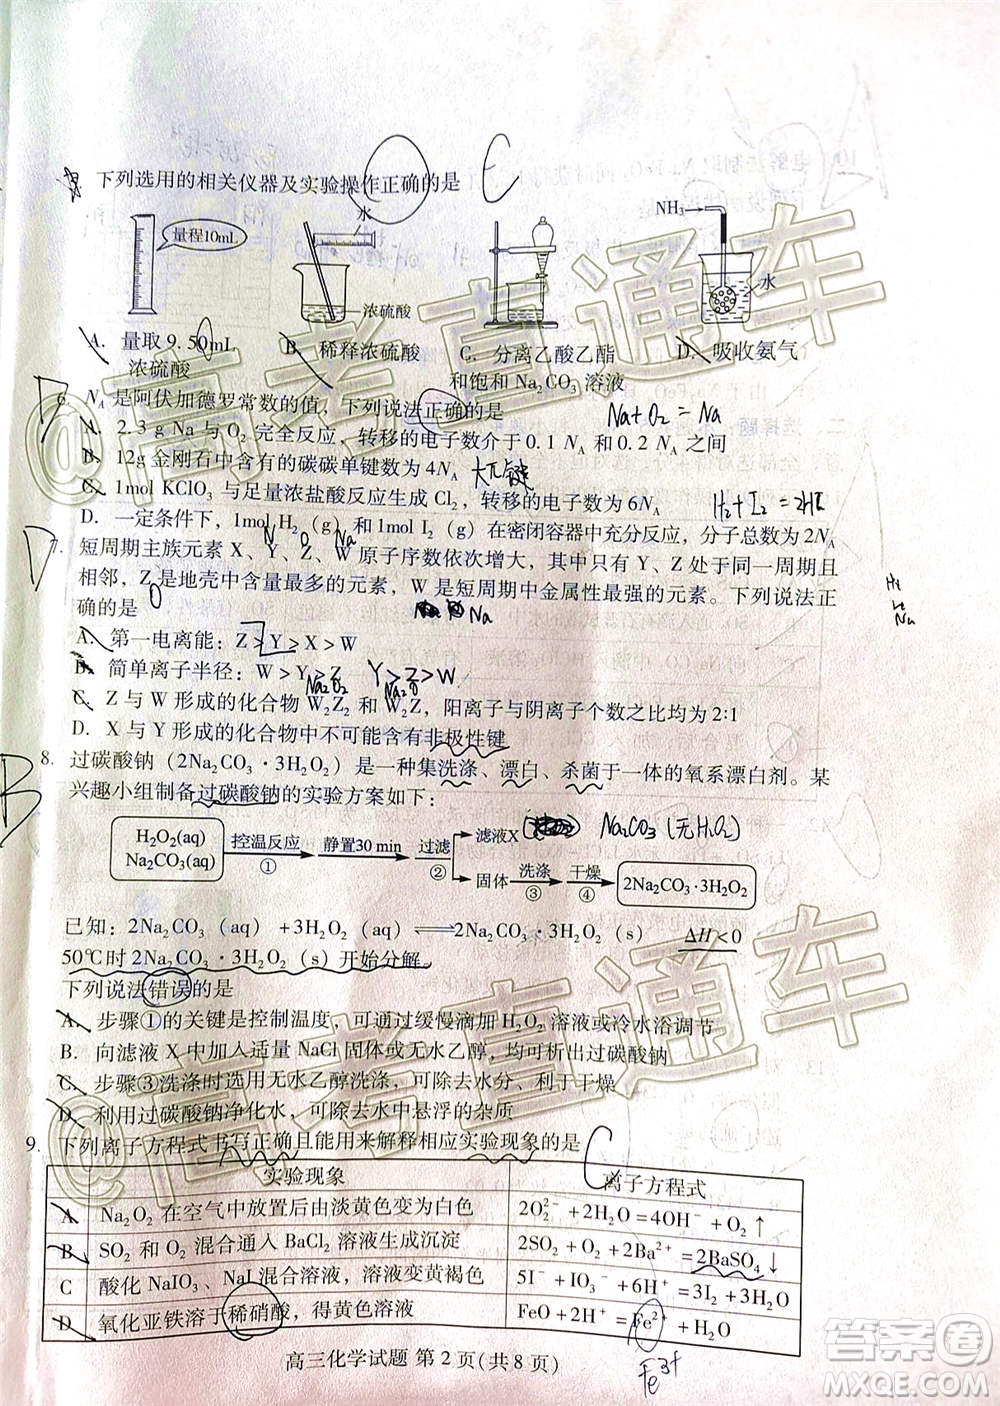 下列选用的相关仪器及实验操作正确的是 C
量程10mL
水
浓硫酸
NH₃
水
A. 量取9.50mL浓硫酸
B. 稀释浓硫酸
C. 分离乙酸乙酯和饱和Na₂CO₃溶液
D. 吸收氨气
D
6. N_A 是阿伏加德罗常数的值，下列说法正确的是
Na+O₂=Na
A. 2.3 g Na 与 O₂ 完全反应，转移的电子数介于0.1 N_A 和0.2 N_A 之间
B. 12g金刚石中含有的碳碳单键数为4N_A
大π键
C. 1mol KClO₃ 与足量浓盐酸反应生成 Cl₂，转移的电子数为6N_A
H₂+I₂=2HI
D. 一定条件下，1mol H₂（g）和1mol I₂（g）在密闭容器中充分反应，分子总数为2N_A
D
N O Na
7. 短周期主族元素 X、Y、Z、W 原子序数依次增大，其中只有 Y、Z处于同一周期且
相邻，Z是地壳中含量最多的元素，W是短周期中金属性最强的元素。下列说法正
O
Na
确的是
A. 第一电离能：Z>Y>X>W
B. 简单离子半径：W>Y>Z
Y>Z>W
Na₂O₂ Na₂O
C. Z 与 W 形成的化合物 W₂Z₂ 中，阳离子与阴离子个数之比均为 2:1
D. X 与 Y 形成的化合物中不可能含有非极性键
B
8. 过碳酸钠（2Na₂CO₃·3H₂O₂）是一种集洗涤、漂白、杀菌于一体的氧系漂白剂。某
兴趣小组制备过碳酸钠的实验方案如下：
H₂O₂(aq)
Na₂CO₃(aq)
控温反应
①
静置30 min
过滤
②
滤液X
Na₂CO₃(无H₂O₂)
固体
洗涤
③
干燥
④
2Na₂CO₃·3H₂O₂
已知：2Na₂CO₃（aq）+3H₂O₂（aq）⇌2Na₂CO₃·3H₂O₂（s） ΔH<0
50℃时 2Na₂CO₃·3H₂O₂（s）开始分解
下列说法错误的是
A. 步骤①的关键是控制温度，可通过缓慢滴加 H₂O₂ 溶液或冷水浴调节
B. 向滤液 X 中加入适量 NaCl 固体或无水乙醇，均可析出过碳酸钠
C. 步骤③洗涤时选用无水乙醇洗涤，可除去水分、利于干燥
D. 利用过碳酸钠净化水，可除去水中悬浮的杂质
9. 下列离子方程式书写正确且能用来解释相应实验现象的是 C
实验现象 离子方程式
A Na₂O₂ 在空气中放置后由淡黄色变为白色 2O₂²⁻+2H₂O=4OH⁻+O₂↑
B SO₂ 和 O₂ 混合通入 BaCl₂ 溶液生成沉淀 2SO₂+O₂+2H₂O+2Ba²⁺=2BaSO₄↓+4H⁺
C 酸化 NaIO₃、NaI 混合溶液，溶液变黄褐色 5I⁻+IO₃⁻+6H⁺=3I₂+3H₂O
D 氧化亚铁溶于稀硝酸，得黄色溶液 FeO+2H⁺=Fe²⁺+H₂O
Fe³⁺
高三化学试题 第 2 页(共 8 页)
@高考直通车
@高考直通车
答案圈
MXQE.COM